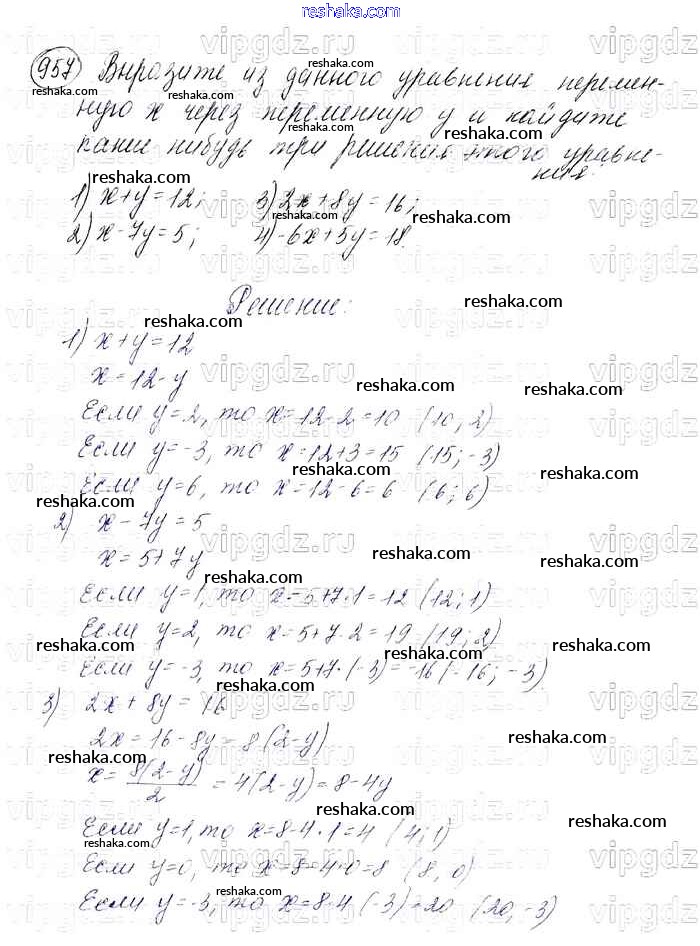 reshaka.com
957 Выразите из данного уравнения перемен-
ную x через переменную y и найдите
какие нибудь три решения этого уравне-
ния:
1) x+y=12; 3) 2x+8y=16;
2) x-7y=5; 4) -6x+5y=18.
Решение:
1) x+y=12
x=12-y
Если y=2, то x=12-2=10 (10; 2)
Если y=-3, то x=12+3=15 (15; -3)
Если y=6, то x=12-6=6 (6; 6)
2) x-7y=5
x=5+7y
Если y=1, то x=5+7·1=12 (12; 1)
Если y=2, то x=5+7·2=19 (19; 2)
Если y=-3, то x=5+7·(-3)=-16 (-16; -3)
3) 2x+8y=16
2x=16-8y=8(2-y)
x=8(2-y)/2=4(2-y)=8-4y
Если y=1, то x=8-4·1=4 (4; 1)
Если y=0, то x=8-4·0=8 (8, 0)
Если y=-3, то x=8-4(-3)=20 (20, -3)